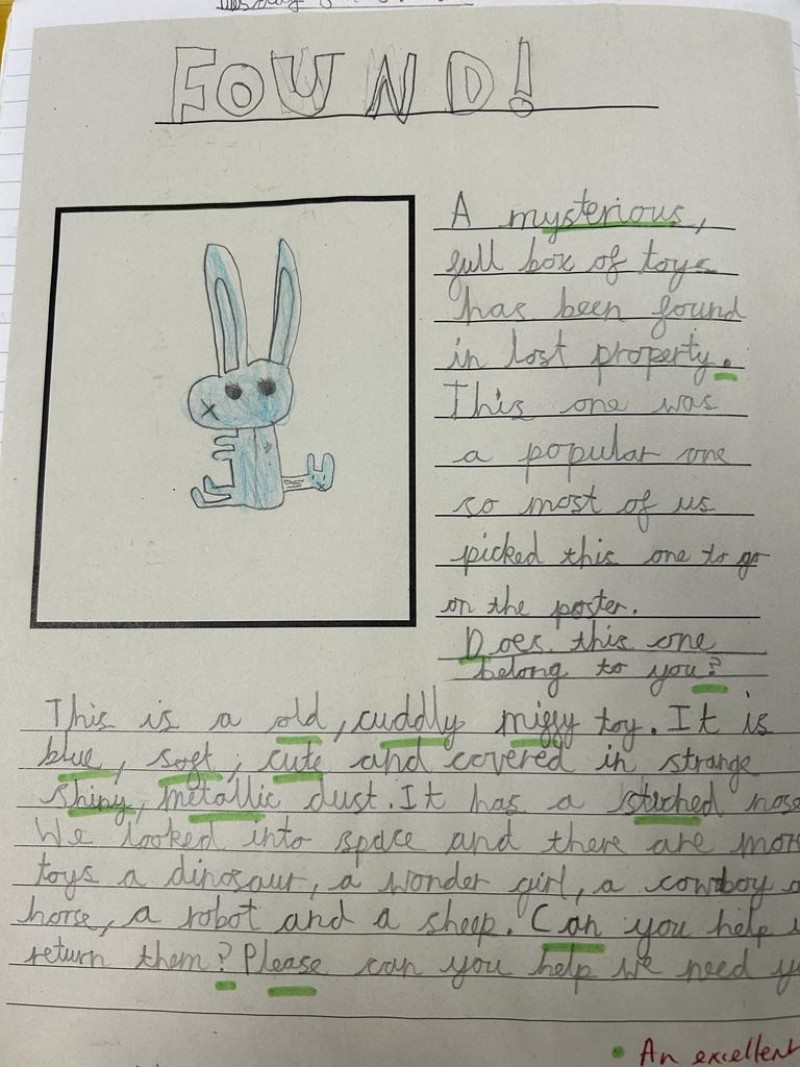 FOUND!
A mysterious,
full box of toys
has been found
in lost property.
This one was
a popular one
so most of us
picked this one to go
on the poster.
Does this one
belong to you?
This is a old, cuddly miffy toy. It is
blue, soft, cute and covered in strange
shiny, metallic dust. It has a stiched nose
We looked into space and there are more
toys a dinosaur, a wonder girl, a cowboy
horse, a robot and a sheep. Can you help
return them? Please can you help we need
An excellent